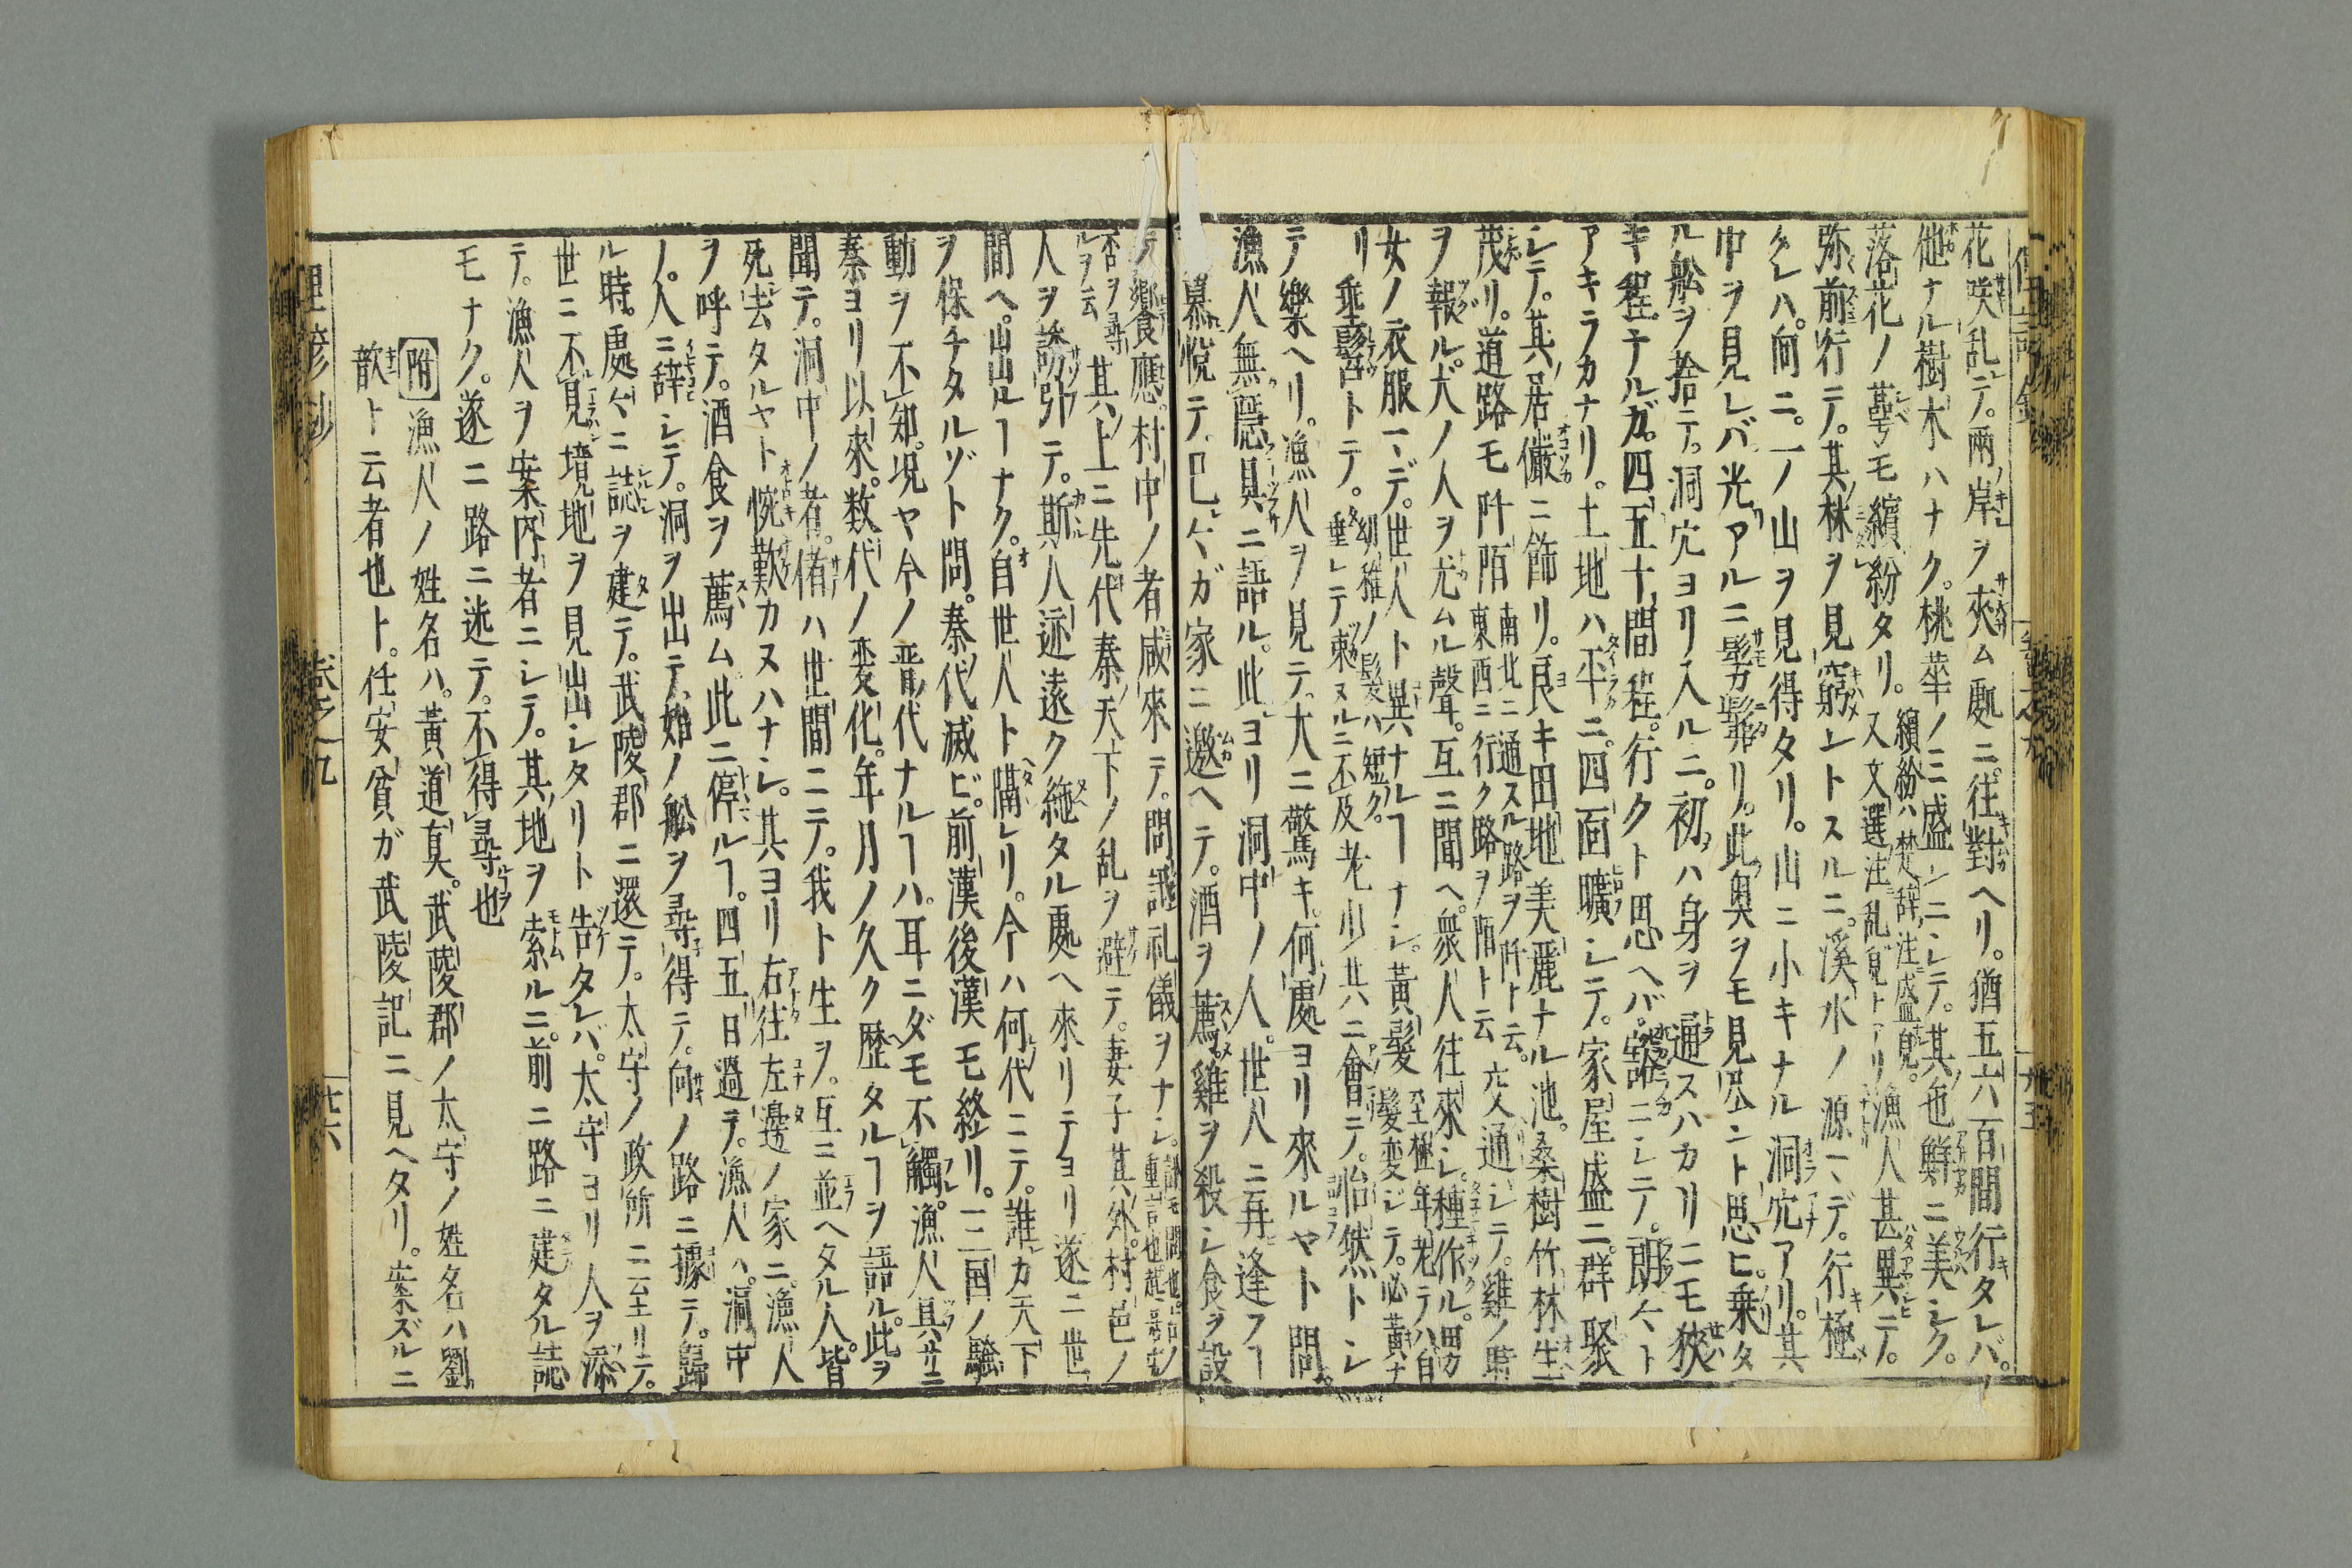 花咲乱テ。兩岸ヲ夾ム處ニ。往對ヘリ。猶五六百間行タレバ。
他ナル樹木ハナク。桃華ノミ盛ンニシテ。其色鮮ニ美シク。
落花ノ蕚モ繽紛タリ。繽紛ハ楚辞注盛皃。又文選注乱皃トアリ漁人甚異テ。
弥前行テ。其林ヲ見窮ントスルニ。溪水ノ源マデ。行極
タレハ。向ニ。一ノ山ヲ見得タリ。山ニ小キナル洞穴アリ。其
中ヲ見レバ光アルニ髣カ髴リ。此奥ヲモ見ント思ヒ。乗タ
ル舩ヲ捨テ。洞穴ヨリ入ルニ。初ハ身ヲ通スハカリニモ狹
キ程ナルガ。四五十間程。行クト思ヘバ。豁ニシテ。朗々ト
アキラカナリ。土地ハ平ニ。四面曠シテ。家屋盛ニ。群聚
シテ。其居儼ニ飾リ。良キ田地美麗ナル池。桑樹竹林生
茂リ。道路モ阡陌南北ニ通スル路ヲ阡ト云。東西ニ行ク路ヲ陌ト云交通シテ。雞ノ時
ヲ報ル。犬ノ人ヲ尤ムル聲。互ニ聞ヘ。衆人往來シ。種作ル。男
女ノ衣服マデ。世人ト異ナルヿナシ。黃髮至極年老テハ自髮変ジテ。必黃ナ
リ垂髫トテ。幼稚ノ髮ハ短ク。垂レテ束ヌルニ不及老少共ニ會テ。怡然トシ
テ樂ヘリ。漁人ヲ見テ大ニ驚キ。何處ヨリ來ルヤト問。
漁人無隱具ニ語ル。此ヨリ洞中ノ人。世人ニ再逢フヿ
慕悅テ。己々ガ家ニ邀ヘテ。酒ヲ薦。雞ヲ殺シ食ヲ設
テ饗應。村中ノ者咸來テ。問訊礼儀ヲナシ。
否ヲ尋ルヲ云其上ニ先代秦ノ天下ノ乱ヲ避テ。妻子其外。村邑ノ
人ヲ誘引テ。斯人迹遠ク絶タル處ヘ來リテヨリ遂ニ世
間ヘ。出ルヿナク。自世人ト隔レリ。今ハ何代ニテ。誰カ天下
ヲ保チタルゾト問。秦代滅ビ。前漢後漢モ終リ。三国ノ騷
動ヲ不知。况ヤ今ノ晋代ナルヿハ。耳ニダモ不觸。漁人具サニ
秦ヨリ以來。数代ノ変化。年月ノ久ク歴タルヿヲ語ル。此ヲ
聞テ。洞中ノ者。偖ハ世間ニテ。我ト生ヲ。互ニ並ヘタル人。皆
死去タルヤト惋歎カヌハナシ。其ヨリ右往左邊ノ家ニ。漁人
ヲ呼テ。酒食ヲ薦ム。此ニ停ルヿ。四五日過テ。漁人ハ。洞中
ノ。人ニ辞シテ。洞ヲ出テ。始ノ舩ヲ尋得テ。向ノ路ニ據テ。歸
ル時。處々ニ誌ヲ建テ。武陵郡ニ還テ。太守ノ政所ニ至リテ。
世ニ不見境地ヲ見出シタリト告タレバ。太守ヨリ人ヲ添
テ。漁人ヲ案内者ニシテ。其地ヲ索ルニ。前ニ路ニ建タル誌
モナク。遂ニ路ニ迷テ。不得尋也
附 漁人ノ姓名ハ。黃道眞。武陵郡ノ太守ノ姓名ハ劉
歆ト云者也ト。任安貧ガ武陵記ニ見ヘタリ。案ズルニ
理諺抄 卷之九 廿六